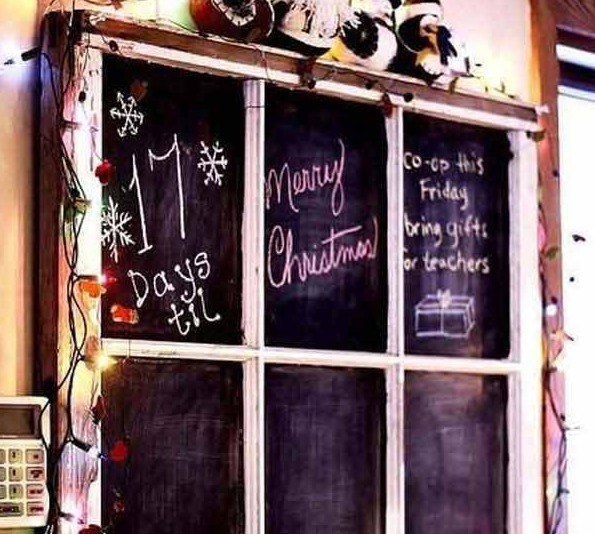 17
Days
til
Merry
Christmas
co-op this
Friday
bring gifts
for teachers